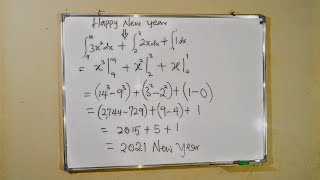 Happy New year
⇓
∫₉¹⁴ 3x² dx + ∫₂³ 2x dx + ∫₀¹ 1 dx
= x³ |₉¹⁴ + x² |₂³ + x |₀¹
= (14³ - 9³) + (3² - 2²) + (1 - 0)
= (2,744 - 729) + (9 - 4) + 1
= 2015 + 5 + 1
= 2021 New Year